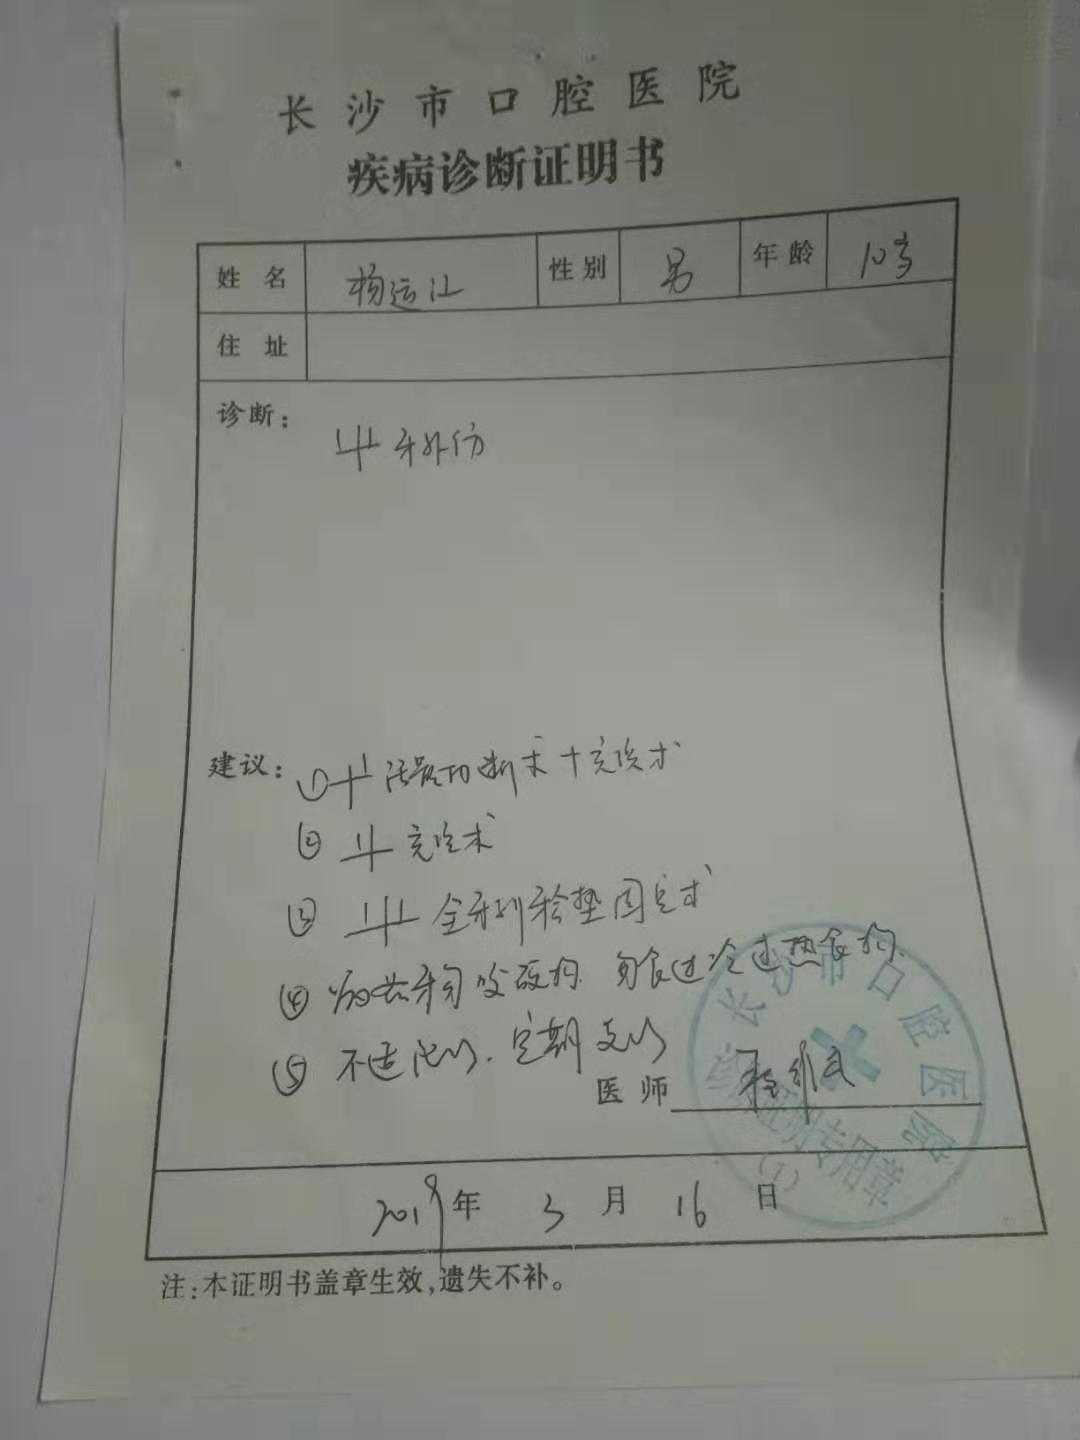 长沙市口腔医院
疾病诊断证明书
姓名 杨运江 性别 男 年龄 10岁
住址
诊断：
1+1 牙外伤
建议：
① +1 活髓切断术+充填术
② 1+ 充填术
③ 1+1 全牙列牙合垫固定术
④ 牙勿咬硬物 勿食过冷过热食物.
⑤ 不适随诊. 定期复诊
医师
长沙市口腔医院
证明专用章
(1)
2019年 3月 16日
注：本证明书盖章生效，遗失不补。